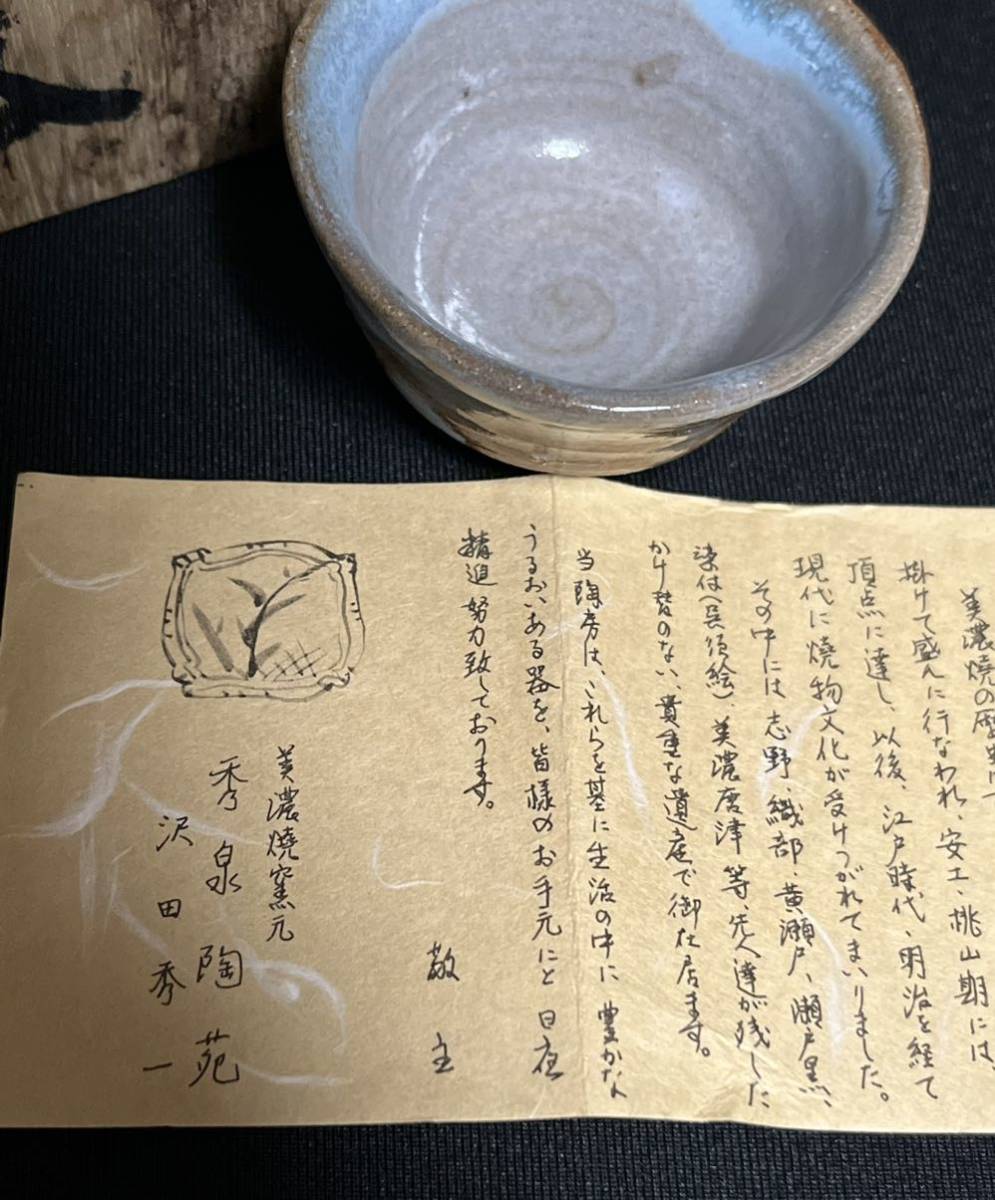 美濃焼の歴史
掛けて盛んに行なわれ、安土、桃山期には、
頂点に達し、以後、江戸時代、明治を経て
現代に焼物文化が受けつがれてまいりました。
その中には志野、織部、黄瀬戸、瀬戸黒、
染付（呉須絵）、美濃唐津等、先人達が残した
かけ替のない、貴重な遺産で御在居ます。
当陶房は、これらを基に生活の中に豊かな
うるおいある器を、皆様のお手元にと日夜
精進努力致しております。
敬主
美濃焼窯元
秀泉陶苑
沢田秀一